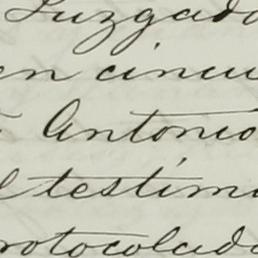 Juzgado
en cincu
Antonio
l testimo
rotocolado